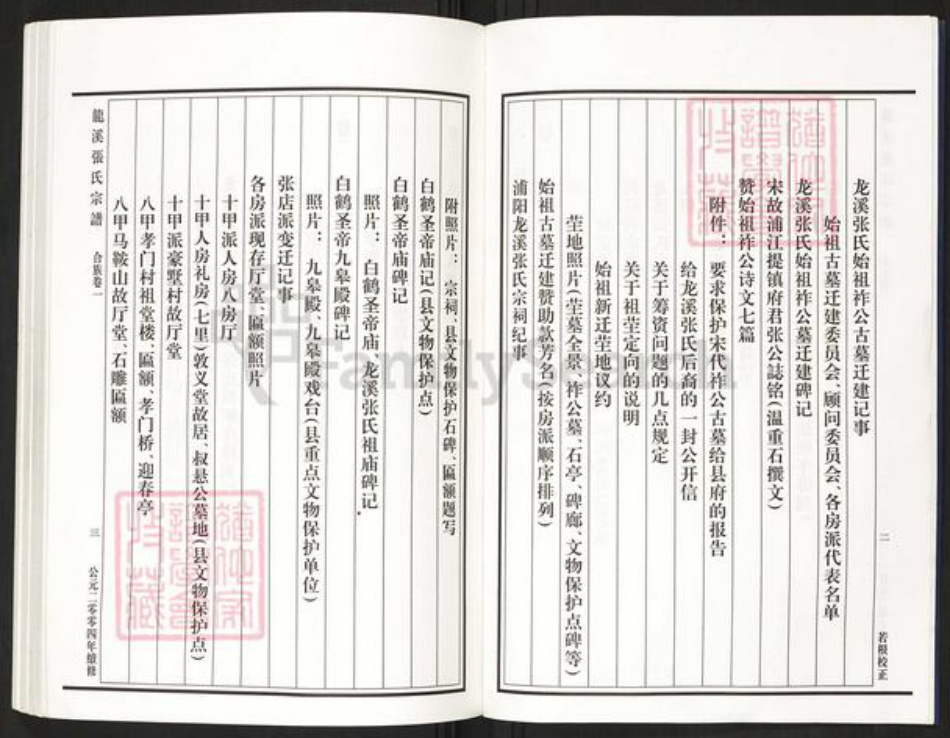 龙溪张氏始祖祚公古墓迁建记事
始祖古墓迁建委员会、顾问委员会、各房派代表名单
龙溪张氏始祖祚公墓迁建碑记
宋故浦江提镇府君张公誌铭(温重石撰文)
赞始祖祚公诗文七篇
附件：要求保护宋代祚公古墓给县府的报告
给龙溪张氏后裔的一封公开信
关于筹资问题的几点规定
关于祖茔定向的说明
始祖新迁茔地议约
茔地照片(茔墓全景、祚公墓、石亭、碑廊、文物保护点碑等)
始祖古墓迁建赞助款芳名(按房派顺序排列)
浦阳龙溪张氏宗祠纪事
二
若根校正
附照片：宗祠、县文物保护石碑、匾额题写
白鹤圣帝庙记(县文物保护点)
白鹤圣帝庙碑记
照片：白鹤圣帝庙、龙溪张氏祖庙碑记
白鹤圣帝九皋殿碑记
照片：九皋殿、九皋殿戏台(县重点文物保护单位)
张店派变迁记事
各房派现存厅堂、匾额照片
十甲派人房八房厅
十甲人房礼房(七里)敦义堂故居、叔悬公墓地(县文物保护点)
十甲派豪墅村故厅堂
八甲孝门村祖堂楼、匾额、孝门桥、迎春亭
八甲马鞍山故厅堂、石雕匾额
龍溪張氏宗譜
合族卷一
三
公元二零零四年续修